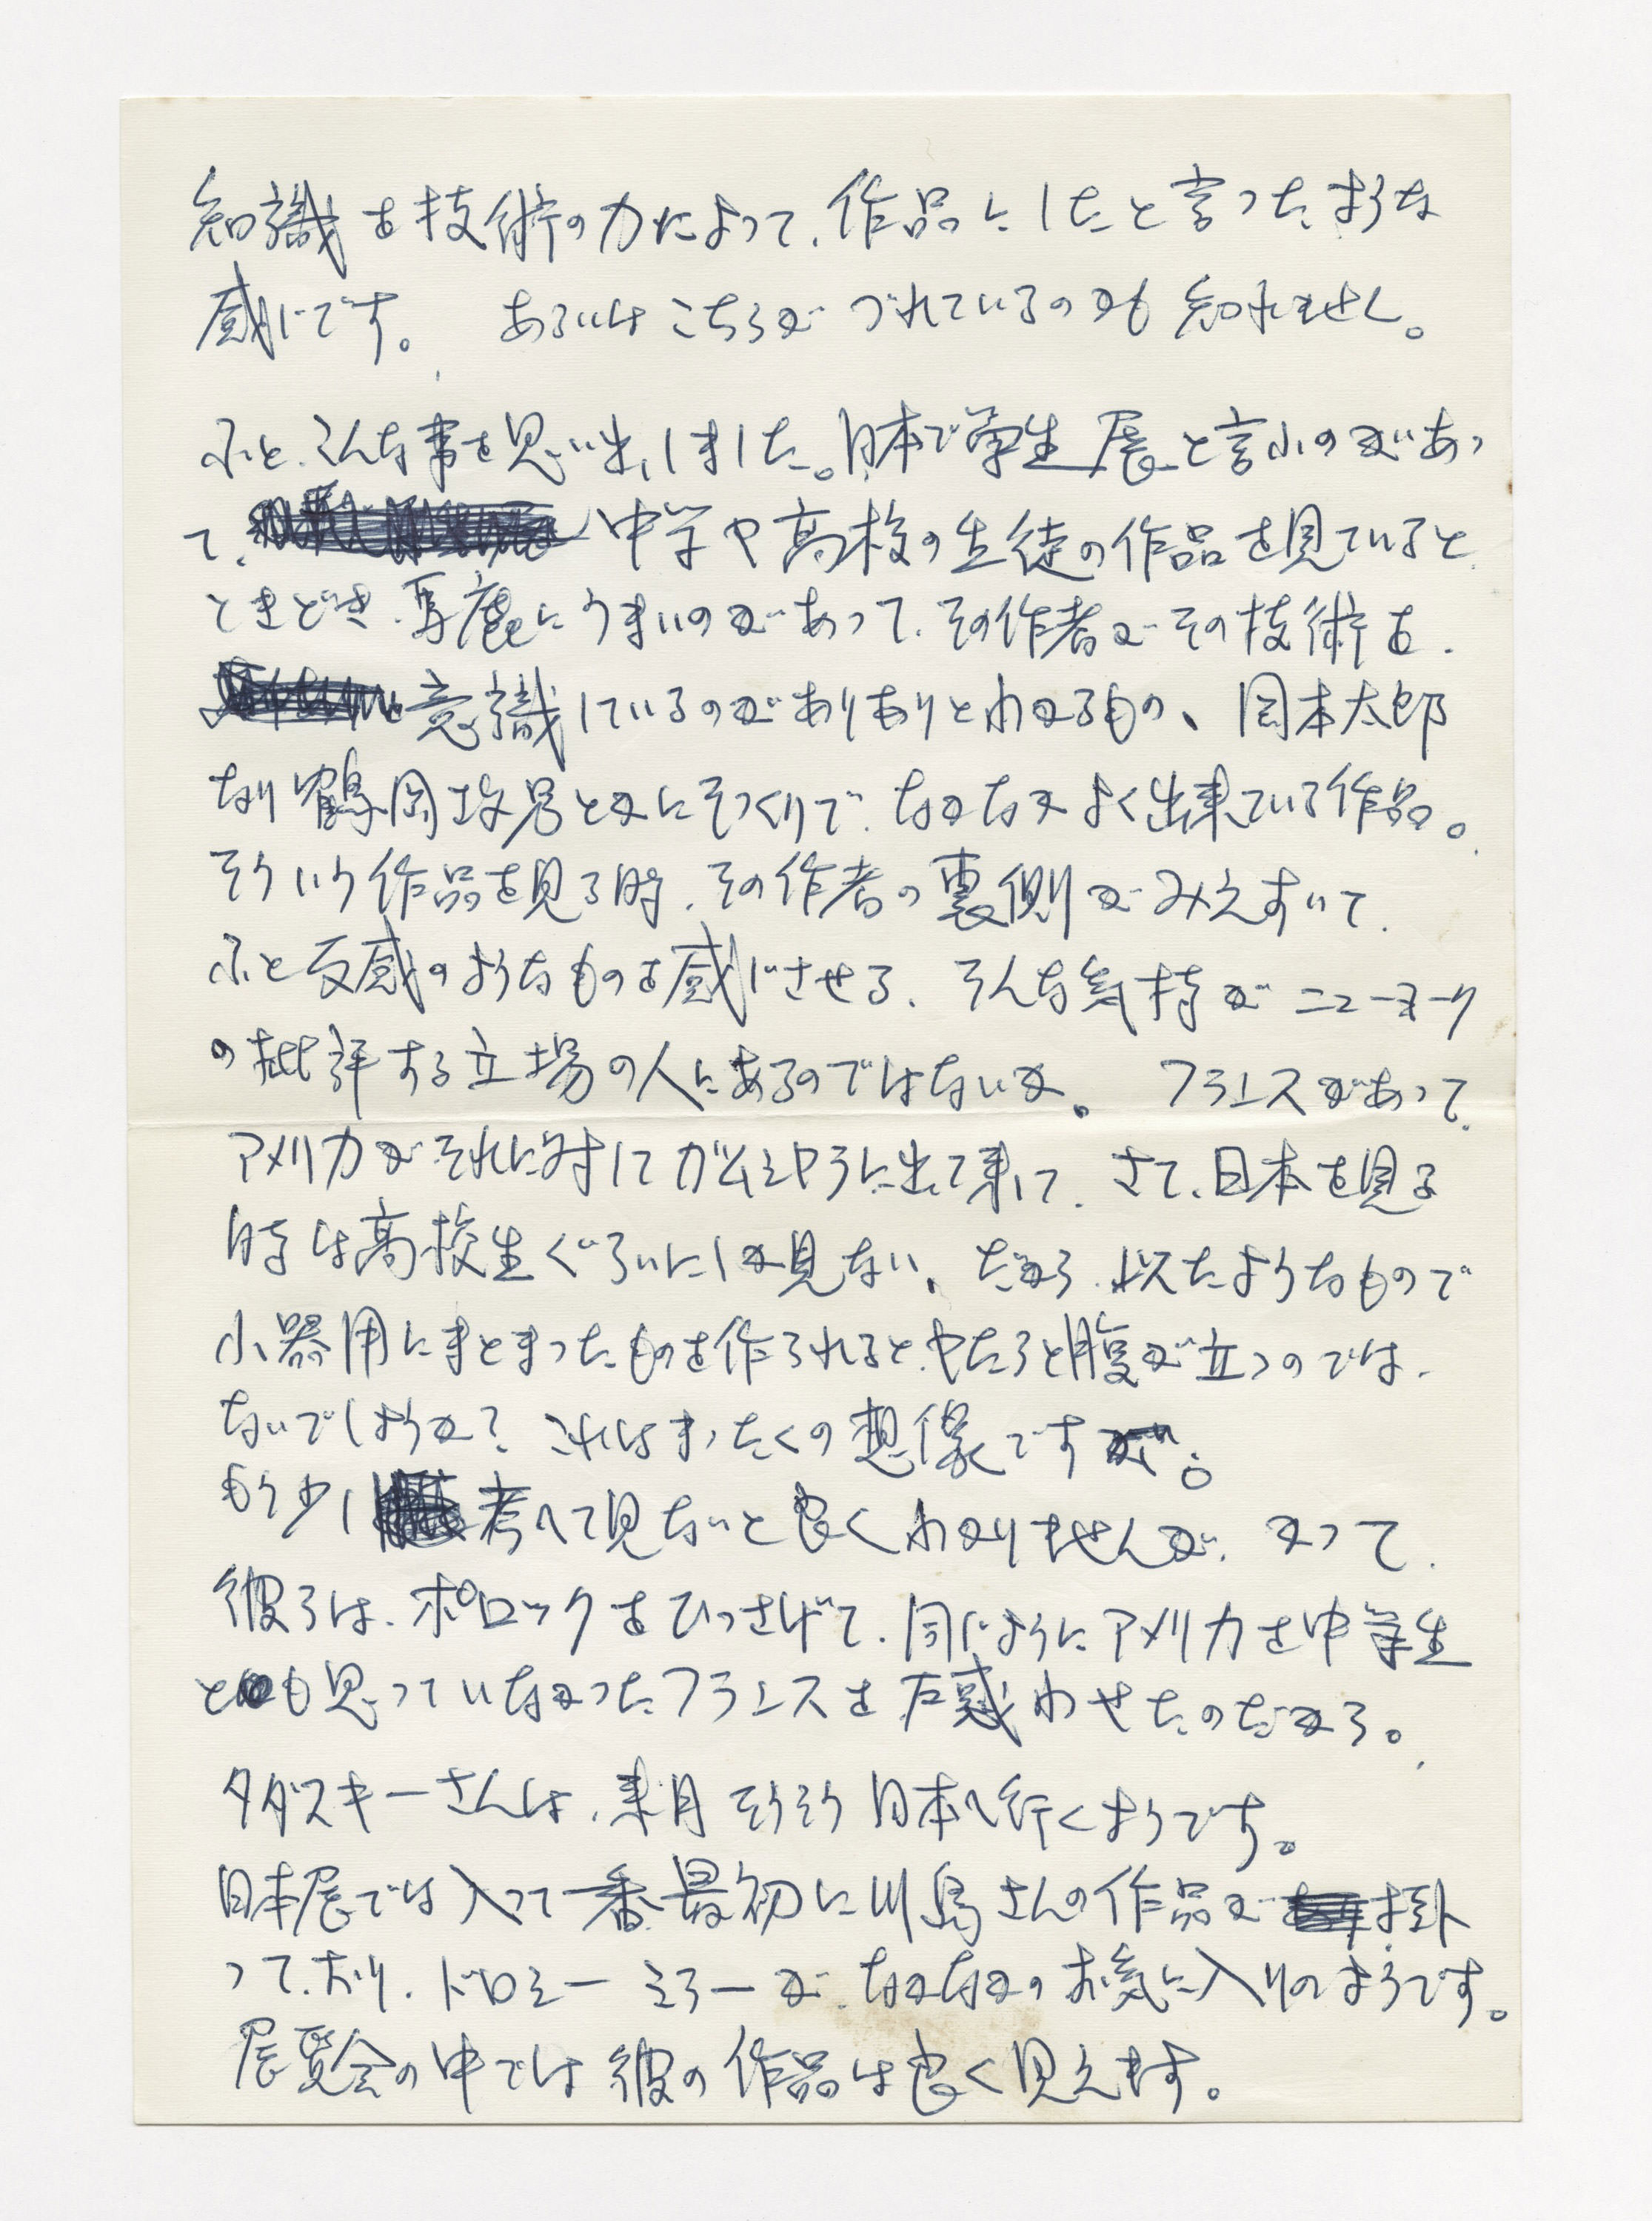 知識を技術の力によって、作品にしたと言ったような
感じです。 あるいはこちらがづれているのかも知れません。
ふと、こんな事を思い出しました。日本で学生展と言ふのがあっ
て、中学や高校の生徒の作品を見ていると
ときどき、馬鹿にうまいのがあって、その作者がその技術を、
意識しているのがありありとわかるもの、岡本太郎
なり鶴岡政男とかにそっくりで、なかなかよく出来ている作品。
そういう作品を見る時、その作者の裏側がみえすいて、
ふと反感のようなものを感じさせる、そんな気持がニューヨーク
の批評する立場の人にあるのではないか。 フランスがあって、
アメリカがそれに対してガムシャラに出て来て、さて、日本を見る
時は高校生ぐらいにしか見ない、だから、似たようなもので
小器用にまとまったものを作られると、やたらと腹が立つのでは、
ないでしょうか? これはまったくの想像ですが。
もう少し考へて見ないと良くわかりませんが、かつて、
彼らは、ポロックをひっさげて、同じようにアメリカを中学生
とも思っていなかったフランスを戸惑わせたのだから。
タダスキーさんは、来月そうそう日本へ行くようです。
日本展では入って一番最初に川島さんの作品が掛
って、おり、ドロシーミラーが、なかなかのお気に入りのようです。
展覧会の中では彼の作品は良く見えます。